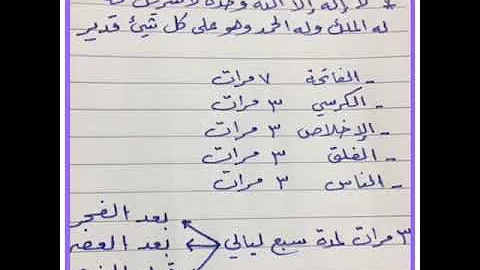 * لا إله إلا الله وحده لا شريك له
له الملك وله الحمد وهو على كل شيئ قدير
- الفاتحة ٧ مرات
- الكرسي ٣ مرات
- الإخلاص ٣ مرات
- الفلق ٣ مرات
- الناس ٣ مرات
بعد الفجر
٣ مرات لمدة سبع ليالي بعد العصر